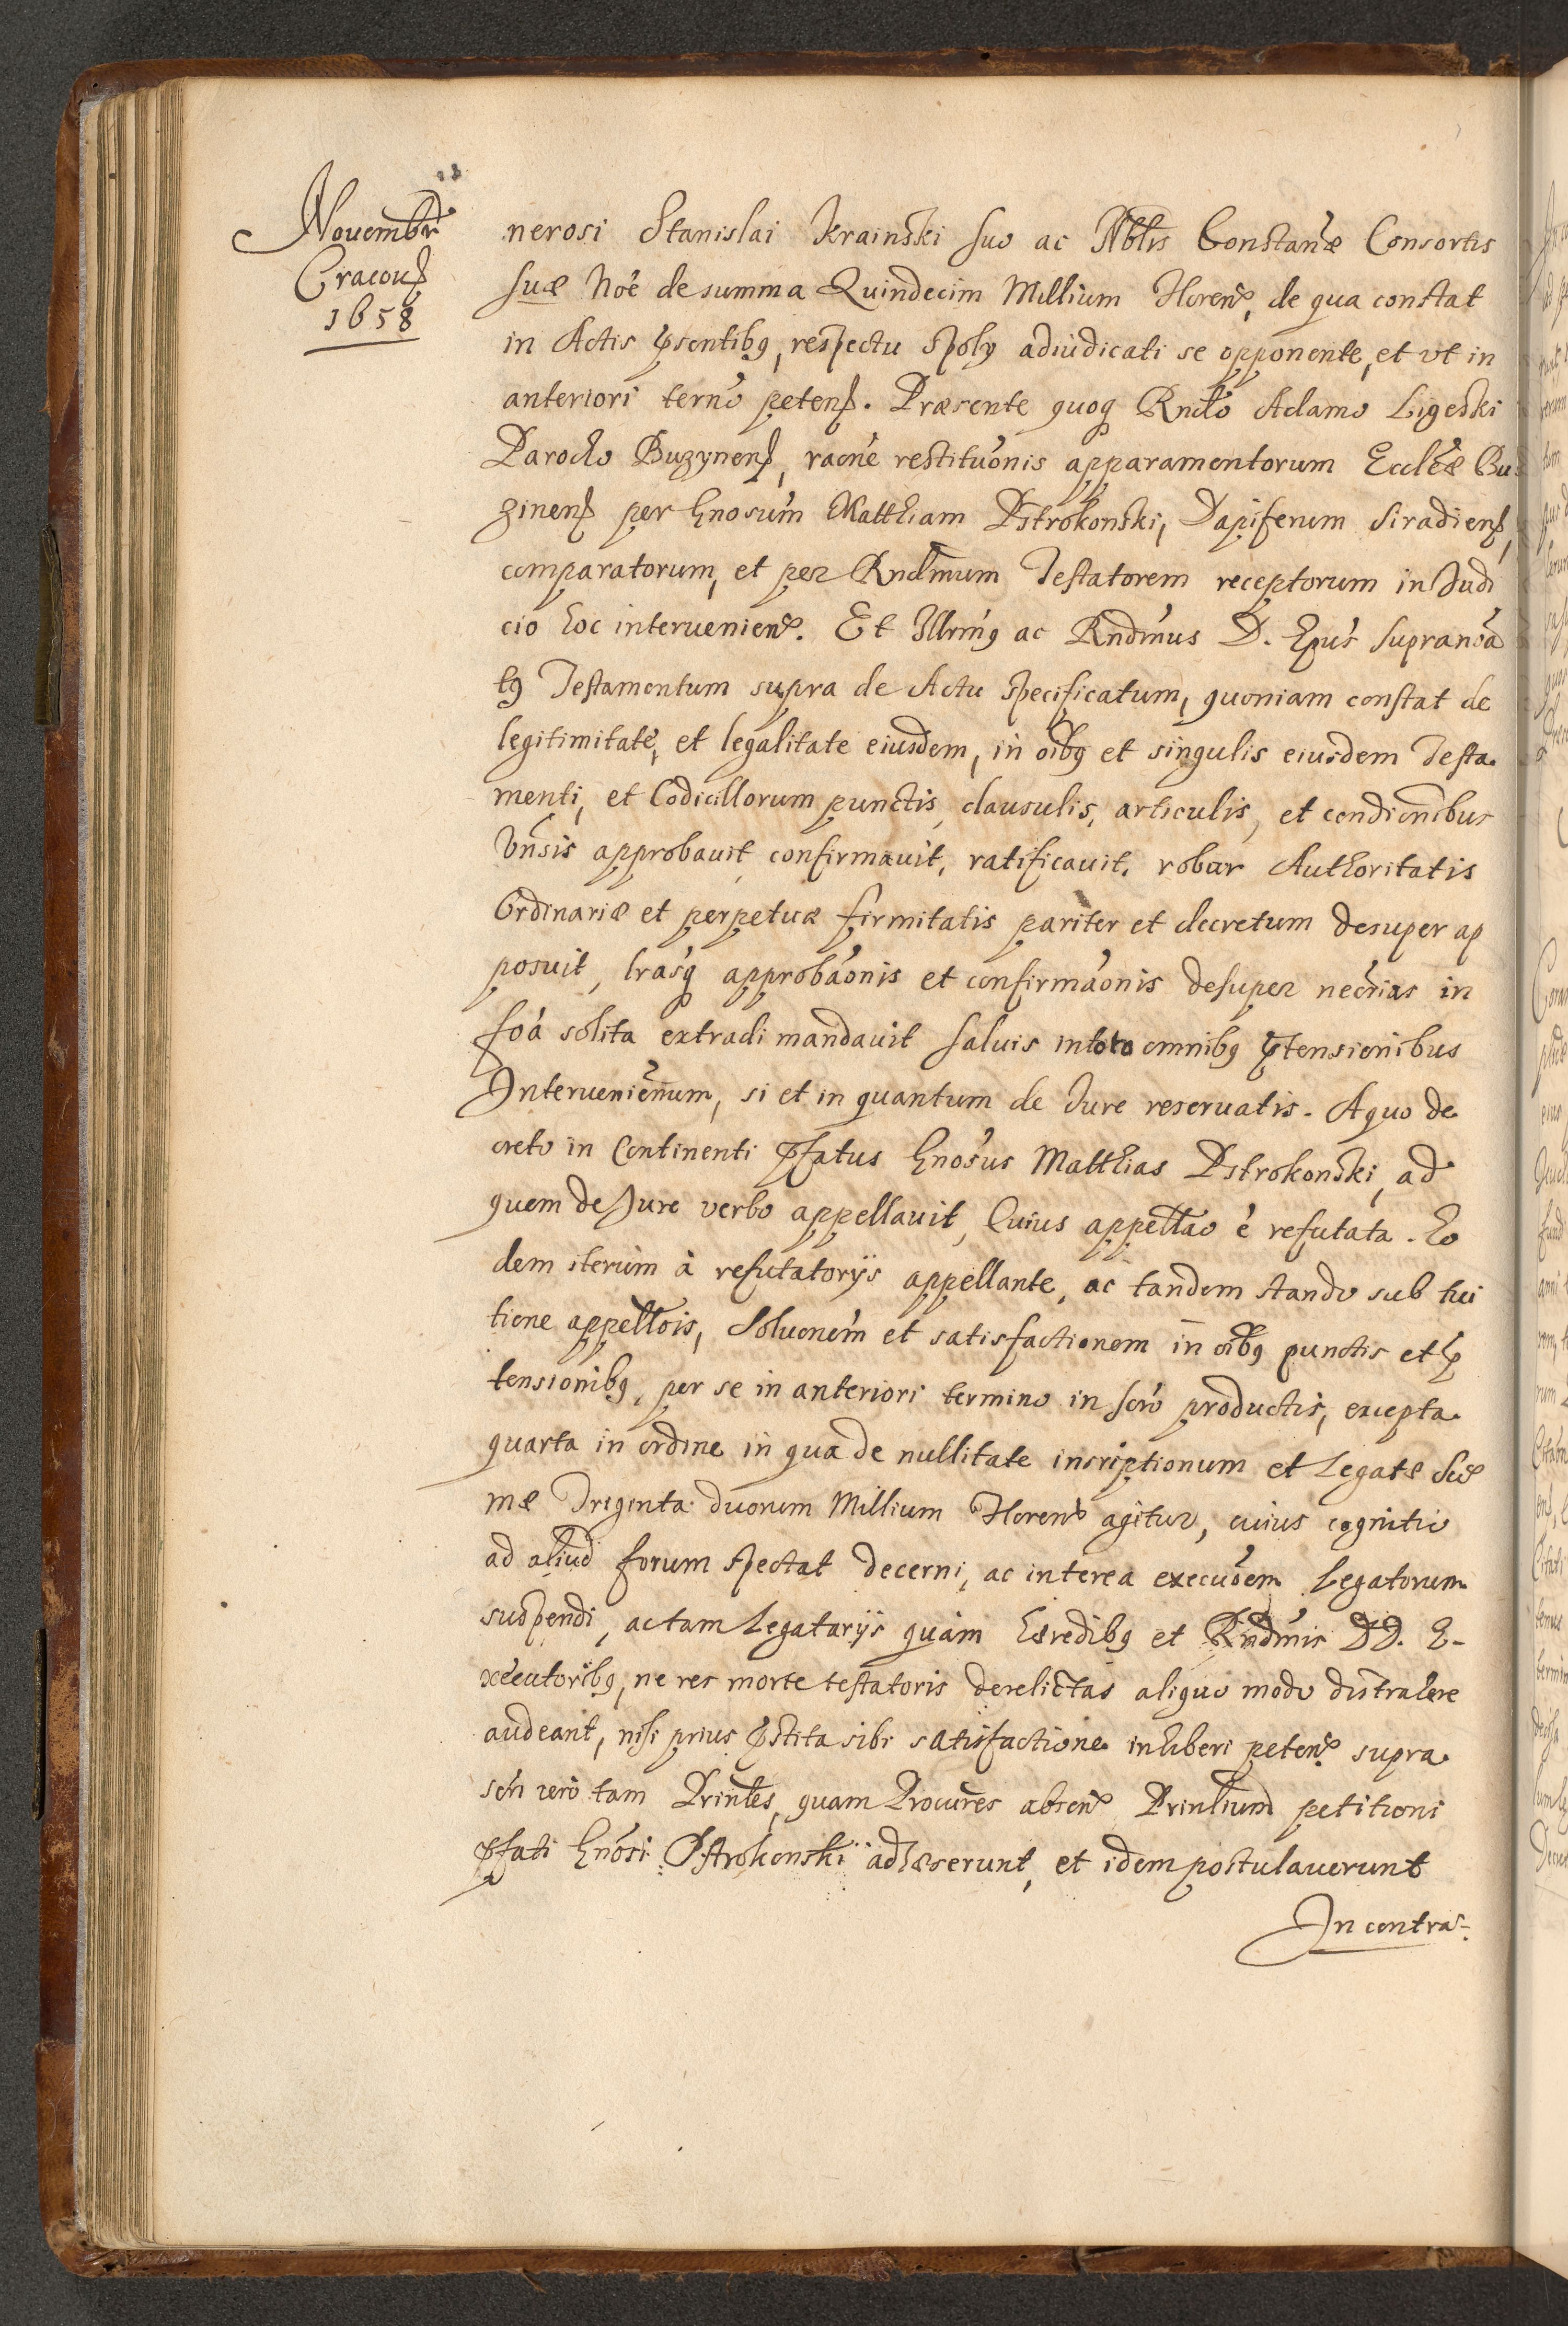 Novembr
Cracou
1658
nerosi Stanislai Krainski suo ac Nblis Constanæ Consortis
suæ noe de summa Quindecim Millium Floren, de qua constat
in Actis pñtibq, respectu spoly adiudicati se opponente, et vt in
anteriori termo peten. Præsente quoq Rndo Adamo Ligeski
Parocho Buzynen, raone restituonis apparamentorum Eccleæ Bu
zinen per Gnosum Matthiam Pstrokonski, Dapiferum Siradien,
comparatorum, et per Rndmum Testatorem receptorum in Judi
cio hoc interuenien. Et Illrmq ac Rndmus D. Epus supranoa
tq Testamentum supra de Actu specificatum, quoniam constat de
legitimitate, et legalitate eiusdem, in oibq et singulis eiusdem Testa
menti, et Codicillorum punctis, clausulis, articulis, et condionibus
vnsis approbauit, confirmauit, ratificauit, robur Authoritatis
Ordinariæ et perpetuæ firmitatis pariter et decretum desuper ap
posuit, lrasq approbaonis et confirmaonis desuper necrias in
foa solita extradi mandauit saluis in toto omnibq ptensionibus
Interuenienum, si et in quantum de Jure reseruatis. A quo de
creto in Continenti pfatus Gnosus Matthias Pstrokonski, ad
quem de Jure verbo appellauit, Cuius appellao e refutata. Eo
dem iterum à refutatorijs appellante, ac tandem stando sub tui
tione appellois, Soluonem et satisfactionem in oibq punctis et p
tensionibq, per se in anteriori termino in scro productis, excepta
quarta in ordine in qua de nullitate inscriptionum et Legatæ Su
mæ Triginta duorum Millium Floren agitur, cuius cognitio
ad aliud forum spectat decerni, ac interea execuoem Legatorum
suspendi, ac tam Legatarijs quàm Hæredibq et Rndmis DD. E-
xecutoribq, ne res morte testatoris derelictas aliquo modo distrahere
audeant, nisi prius pstita sibi satisfactione inhiberi peten supra
scri vero tam Prinles, quam Procures absen Prinlium petitioni
pfati Gnosi Pstrokonski adhæserunt, et idem postulauerunt
In contra